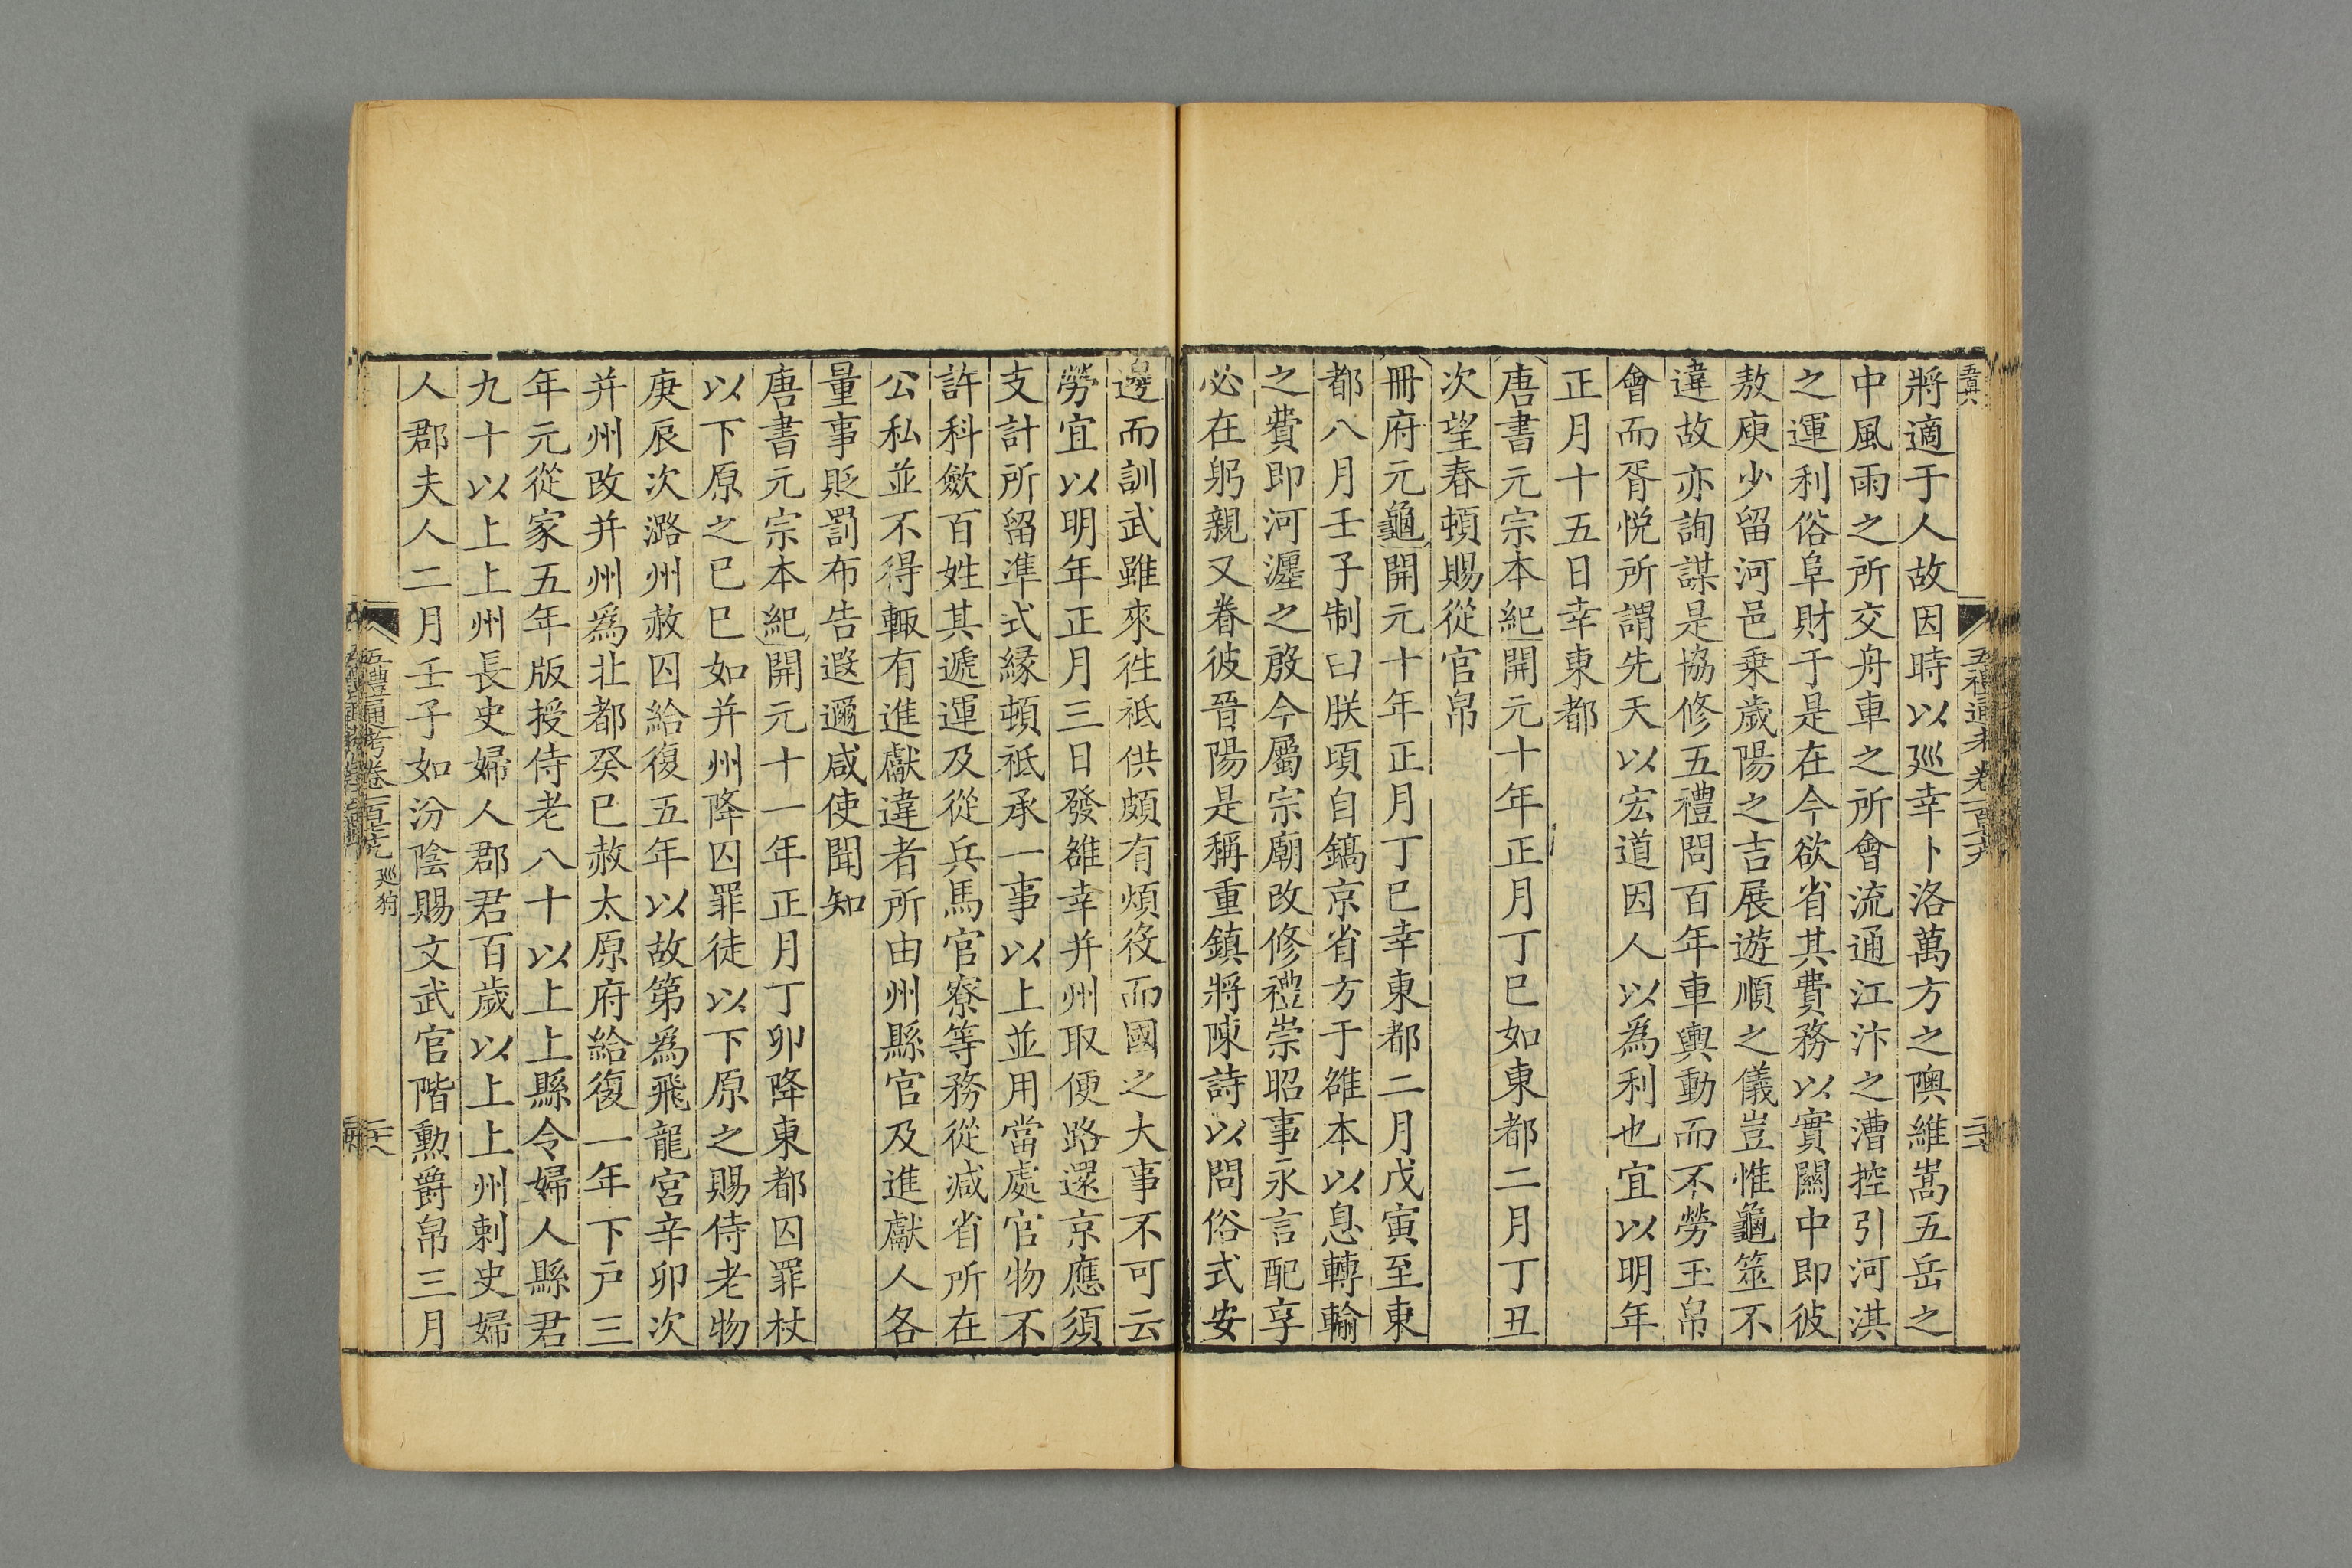 將適于人故因時以廵幸卜洛萬方之隩維嵩五岳之
中風雨之所交舟車之所會流通江汴之漕控引河淇
之運利俗阜財于是在今欲省其費務以實關中即彼
敖庾少留河邑乗歲陽之吉展遊順之儀豈惟龜筮不
違故亦詢謀是協修五禮問百年車輿動而不勞玉帛
會而胥悦所謂先天以宏道因人以為利也宜以明年
正月十五日幸東都
唐書元宗本紀開元十年正月丁巳如東都二月丁丑
次望春頓賜從官帛
冊府元龜開元十年正月丁巳幸東都二月戊寅至東
都八月壬子制曰朕頃自鎬京省方于雒本以息轉輸
之費即河瀍之啟今屬宗廟改修禮崇昭事永言配享
必在躬親又眷彼晉陽是稱重鎮將陳詩以問俗式安
邊而訓武雖來徃祇供頗有煩役而國之大事不可云
勞宜以明年正月三日發雒幸并州取便路還京應須
支計所留準式縁頓祗承一事以上並用當處官物不
許科歛百姓其遞運及從兵馬官寮等務從減省所在
公私並不得輙有進獻違者所由州縣官及進獻人各
量事貶罰布告遐邇咸使聞知
唐書元宗本紀開元十一年正月丁卯降東都囚罪杖
以下原之已巳如并州降囚罪徒以下原之賜侍老物
庚辰次潞州赦囚給復五年以故第為飛龍宮辛卯次
并州改并州為北都癸巳赦太原府給復一年下户三
年元從家五年版授侍老八十以上上縣令婦人縣君
九十以上上州長史婦人郡君百歲以上上州刺史婦
人郡夫人二月壬子如汾陰賜文武官階勲爵帛三月
五禮通考卷一百七十九 廵狩